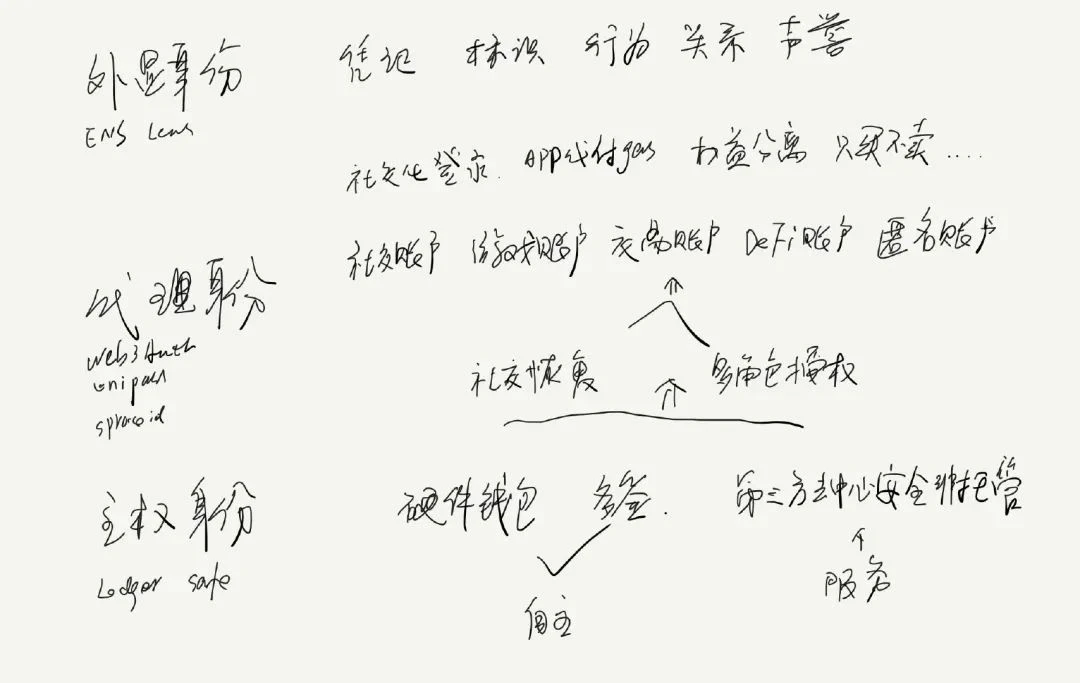 外显身份 凭记 标识 行为 关系 声誉
ENS Lens
社交化登录. APP代付gas 权益分离 只买不卖....
社交账户 游戏账户 交易账户 DeFi账户 匿名账户
代理身份
Web3Auth
unipass
社交恢复 多角色授权
主权身份 硬件钱包 多签. 第三方去中心安全非托管
Ledger safe 服务
自主